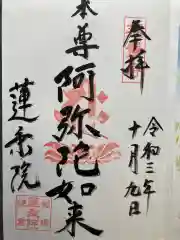 奉拝
令和三年
十月九日
本尊
阿弥陀如来
蓮乗院